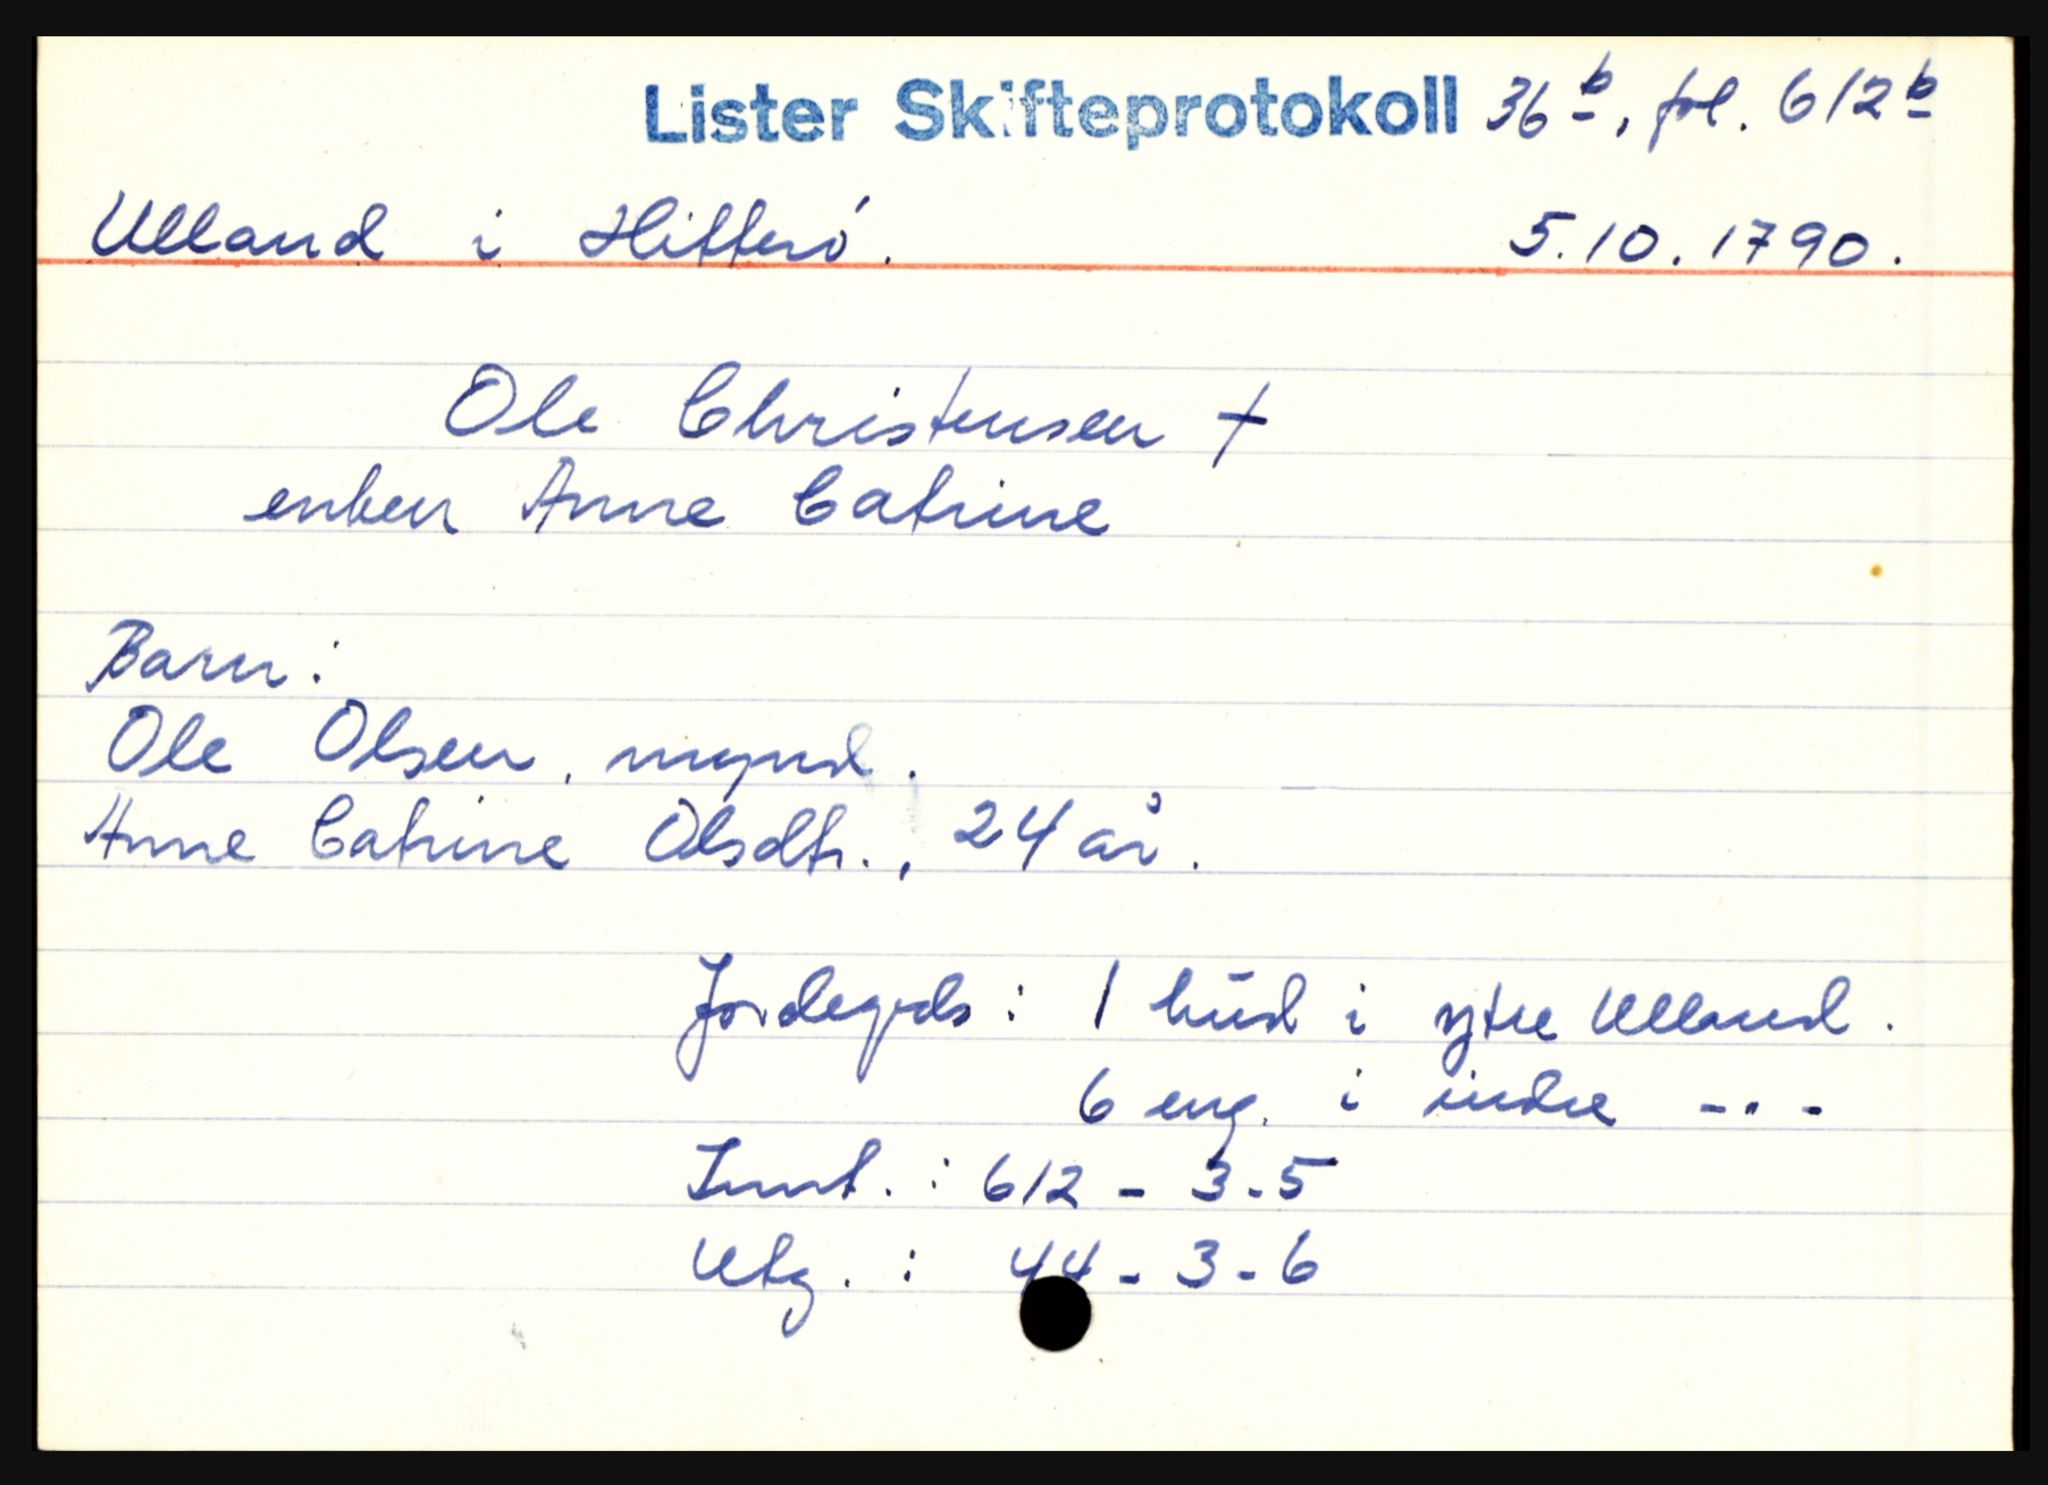 Lister Skifteprotokoll 36 b, fol. 612 b
Ulland i Hitterö. 5.10.1790.
Ole Christensen †
enken Anne Catrine
Barn:
Ole Olsen, mynd.
Anne Catrine Olsdtr., 24 år.
Jordegods: 1 hud i ytre Ulland.
6 eng. i indre -"-
Innt.: 612 - 3 - 5
Utg.: 44 - 3 - 6